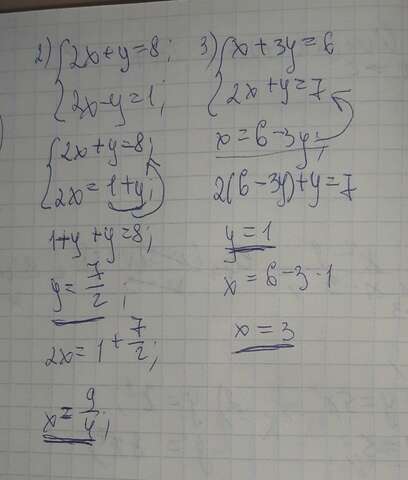 2) { 2x + y = 8;
2x - y = 1;
{ 2x + y = 8;
2x = 1 + y;
1 + y + y = 8;
y = 7/2;
2x = 1 + 7/2;
x = 9/4;
3) { x + 3y = 6
2x + y = 7
x = 6 - 3y;
2(6 - 3y) + y = 7
y = 1
x = 6 - 3 · 1
x = 3